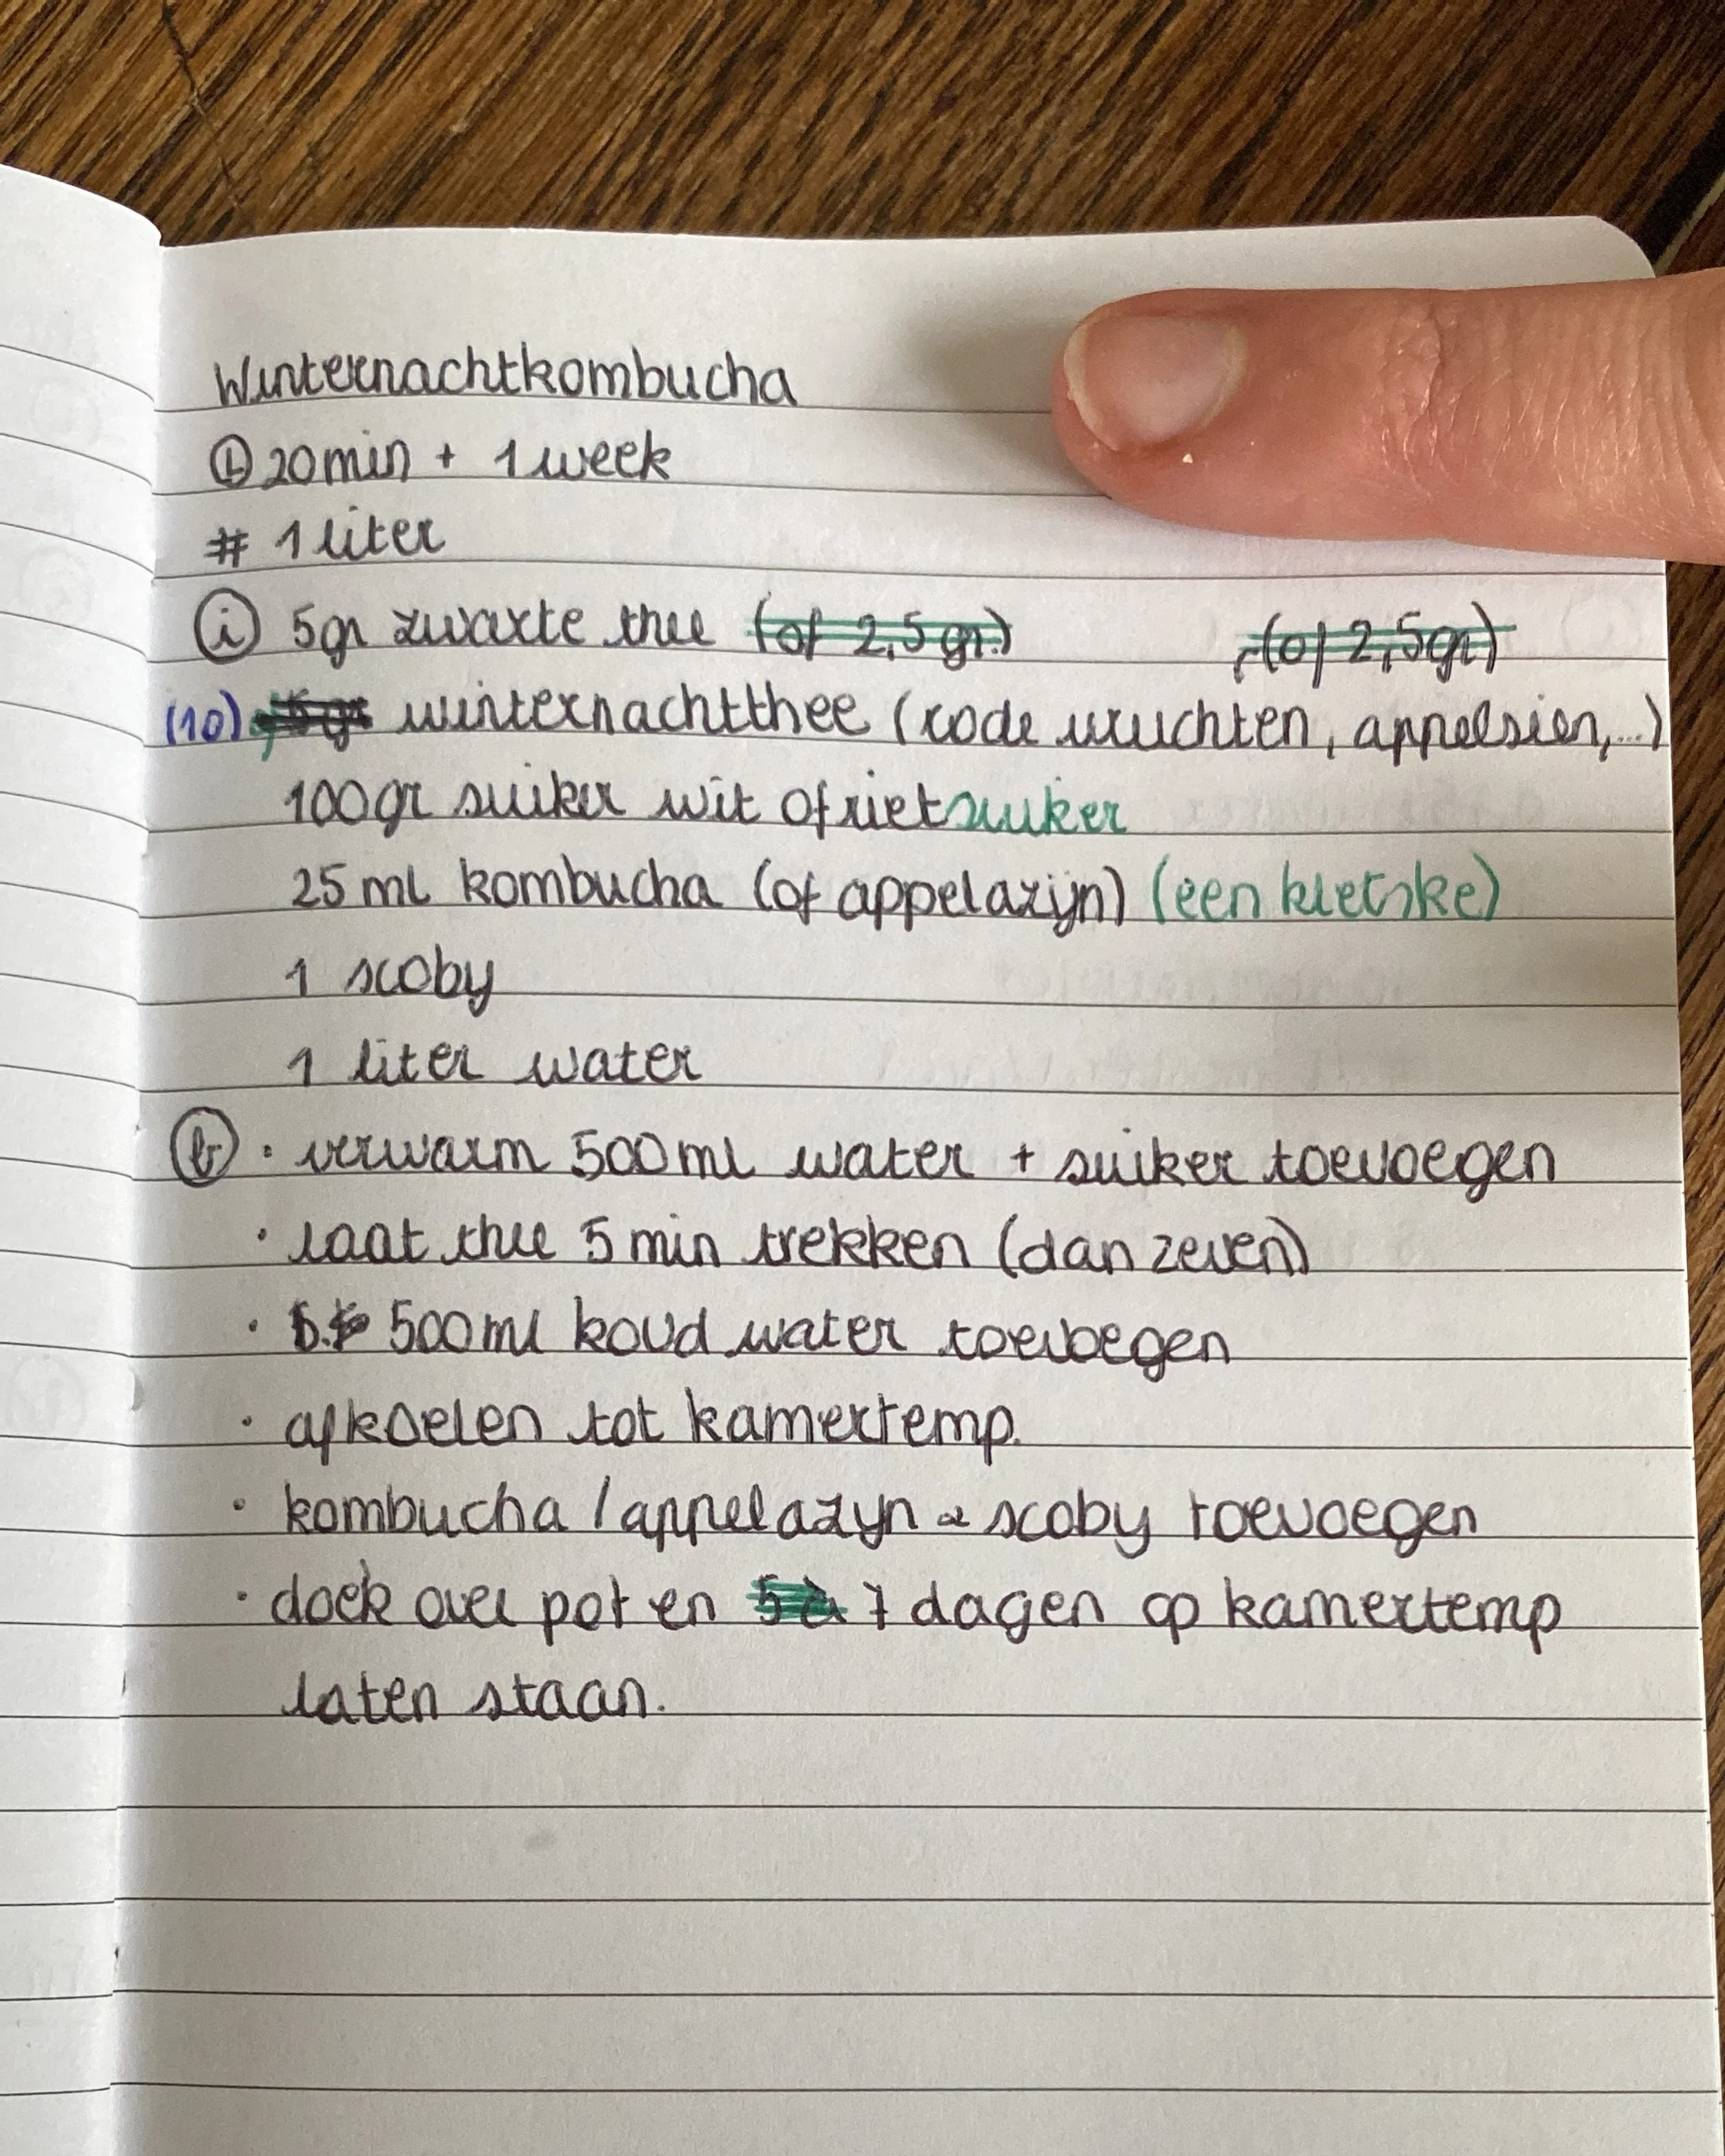 Winternachtkombucha
20 min + 1 week
# 1 liter
i 5gr zwarte thee (of 2,5 gr.) (of 2,5gr)
(10) 5gr winternachtthee (rode vruchten, appelsien,...)
100gr suiker wit of rietsuiker
25 ml kombucha (of appelazijn) (een kletske)
1 scoby
1 liter water
b · verwarm 500 ml water + suiker toevoegen
· laat thee 5 min trekken (dan zeven)
· 500 ml koud water toevoegen
· afkoelen tot kamertemp.
· kombucha / appelazijn & scoby toevoegen
· doek over pot en 5 à 7 dagen op kamertemp
laten staan.